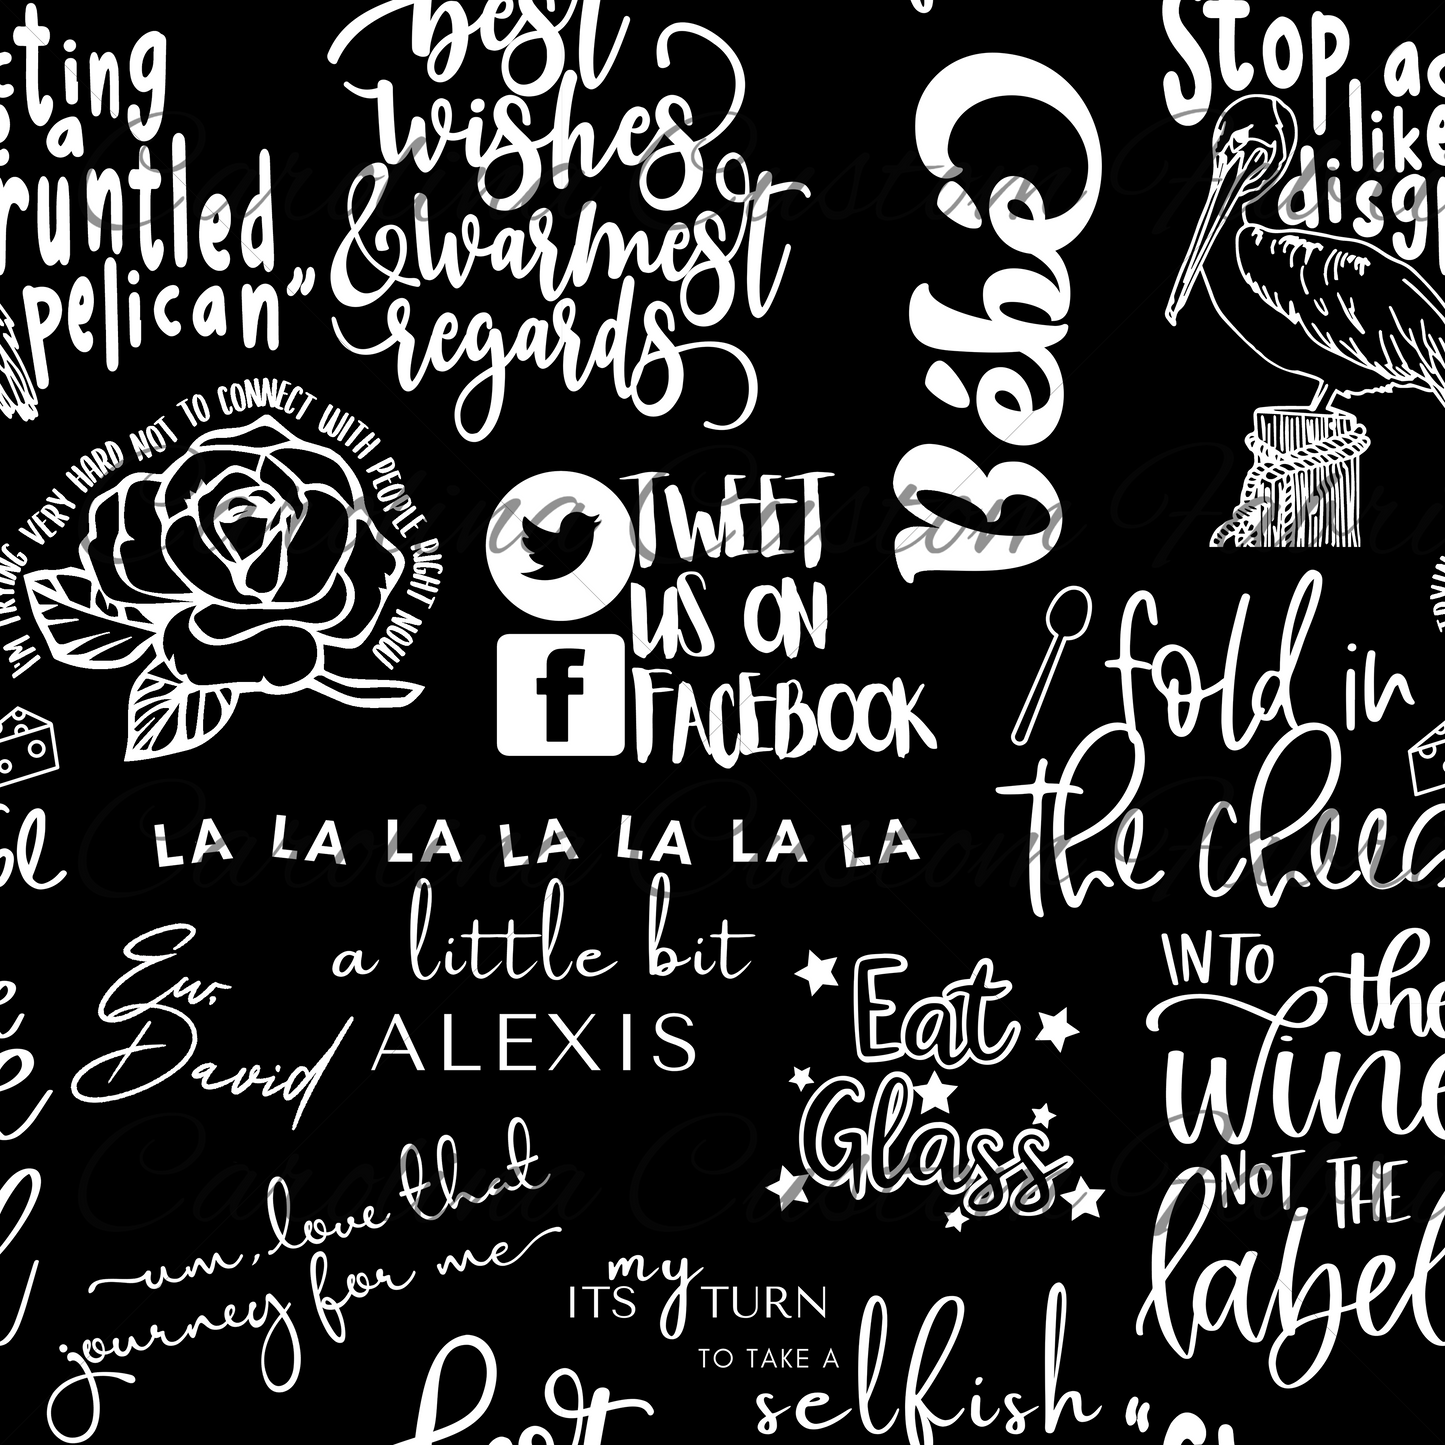 best
wishes
& warmest
regards
Bébé
Stop
like
ting
a
runtled
pelican"
I'M TRYING VERY HARD NOT TO CONNECT WITH PEOPLE RIGHT NOW
TWEET
US ON
FACEBOOK
fold in
the chee
LA LA LA LA LA LA LA
a little bit
ALEXIS
Ew,
David
Eat
Glass
INTO the
wine
NOT THE
label
um, love that
journey for me
ITS my TURN
TO TAKE A
selfish
Carolina Custom